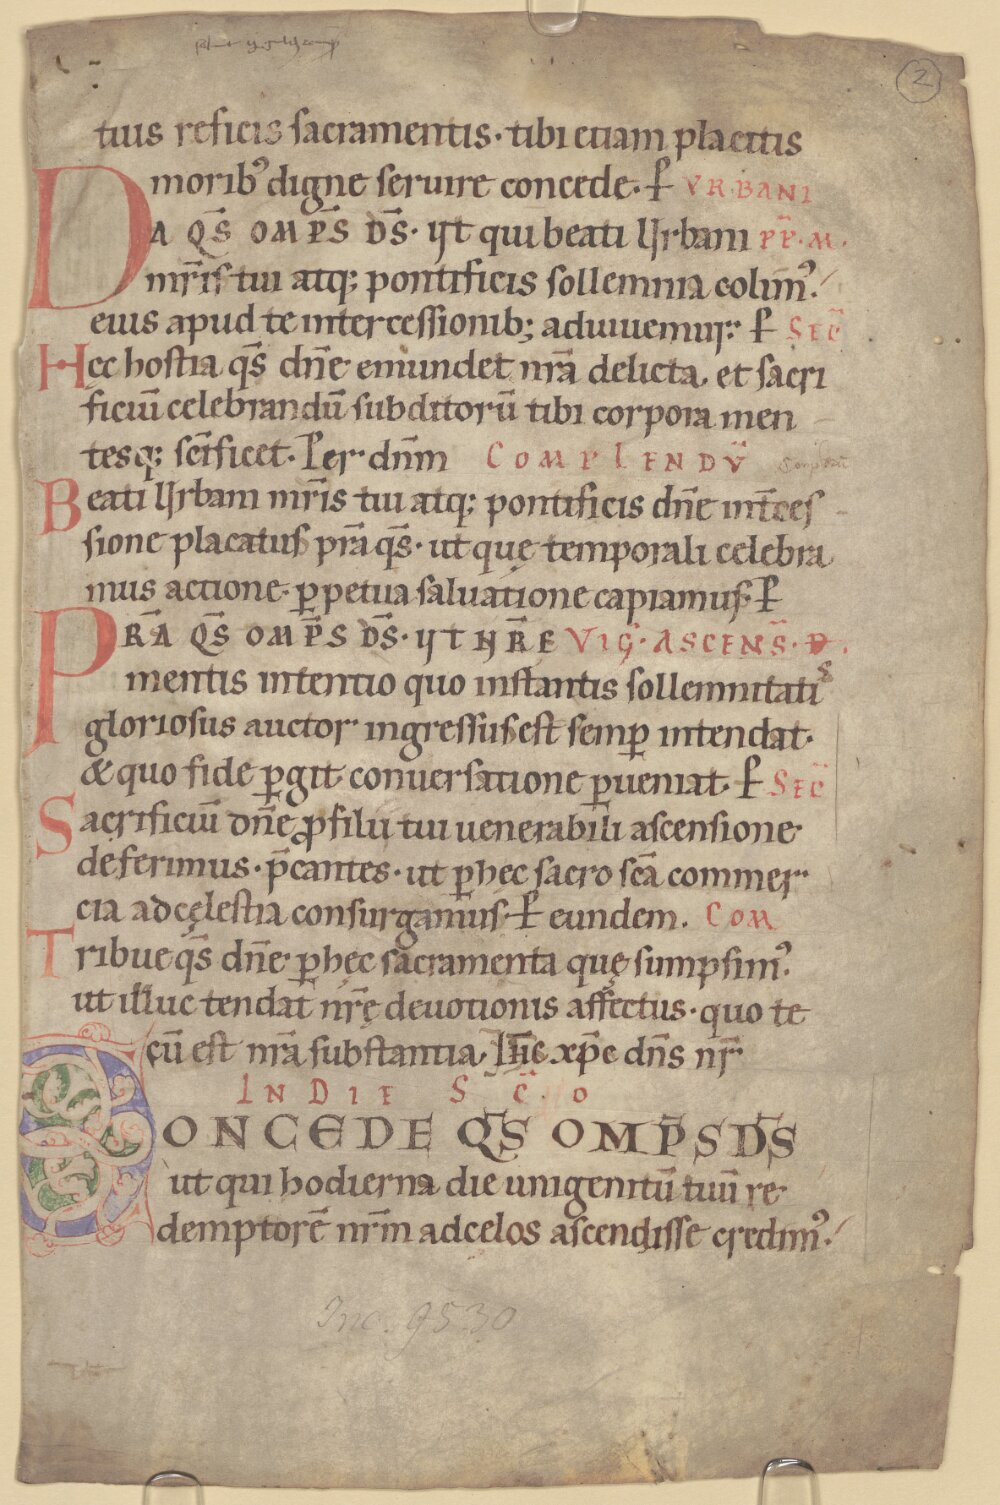 2
tuis reficis sacramentis· tibi etiam placitis
moribꝰ digne seruire concede· P̄ VRBANI
DA QS̄ OMP̄S DS̄· UT qui beati Urbani PP̄· M·
mr̄is tui atq; pontificis sollemnia colimꝰ·
eius apud te intercessionib; adiuuemur· P̄ SEC̄
Hec hostia qs̄ dn̄e emundet nr̄a delicta, et sacri
ficiū celebrandū subditorū tibi corpora men
tesq; sc̄ificet· Per dn̄m COMPLENDV̄
Beati Urbani mr̄is tui atq; pontificis dn̄e int̄ces
sione placatus pr̄a qs̄· ut quę temporali celebra
mus actione· ꝑpetua saluatione capiamus· P̄
PRĀ QS̄ OMP̄S DS̄· UT NR̄E VIḠ· ASCENS̄· D̄·
mentis intentio quo instantis sollemnitatis
gloriosus auctor ingressus est semꝑ intendat·
& quo fide ꝑgit conuersatione ꝑueniat· P̄ SEC̄
Sacrificiū dn̄e ꝓ filii tui uenerabili ascensione
deferimus· p̄cantes· ut ꝑ hęc sacro sc̄a commer
cia ad cęlestia consurgamus· P̄ eundem. COM
Tribue qs̄ dn̄e ꝑ hęc sacramenta quę sumpsimꝰ·
ut illuc tendat nr̄ę deuotionis affectus· quo te
cū est nr̄a substantia· Ih̄c xp̄e dn̄s nr̄
IN DIE S̄ C̄· O
CONCEDE QS̄ OMP̄S DS̄
ut qui hodierna die unigenitū tuū re
demptorē nr̄m ad celos ascendisse credimꝰ·
Inc. 9530